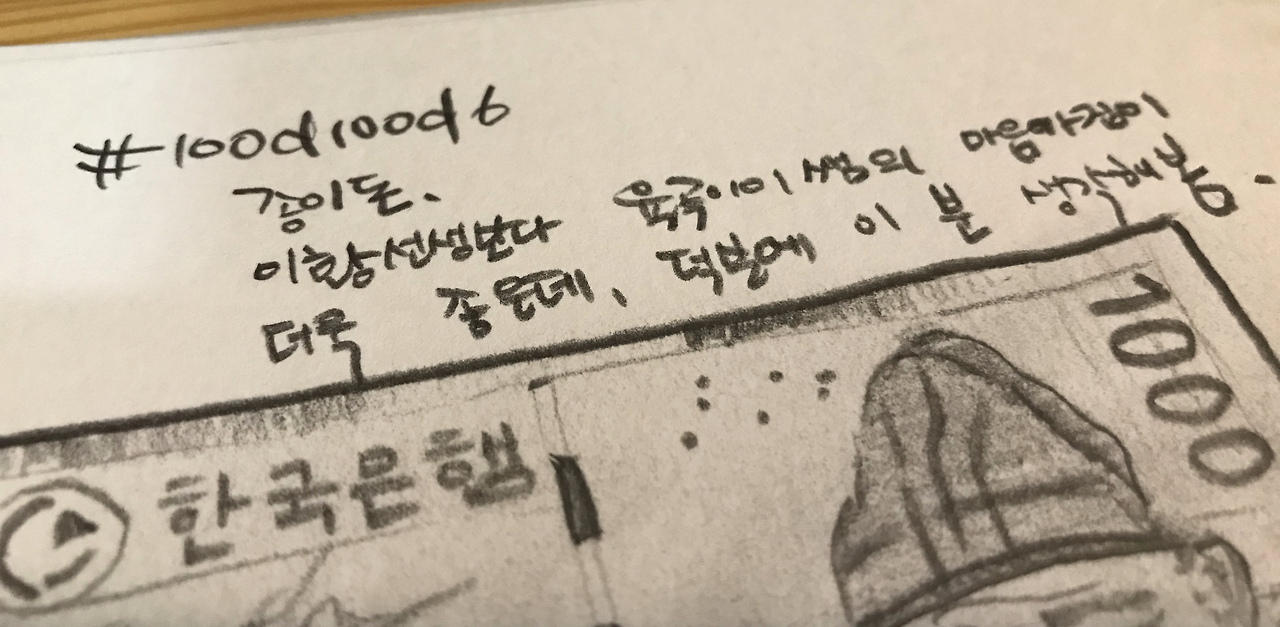 #100d100d6
종이돈.
이황선생보다 육국이이쌤의 마음가짐이
더욱 좋은데, 덕분에 이 분 생각해봄.
한국은행
1000